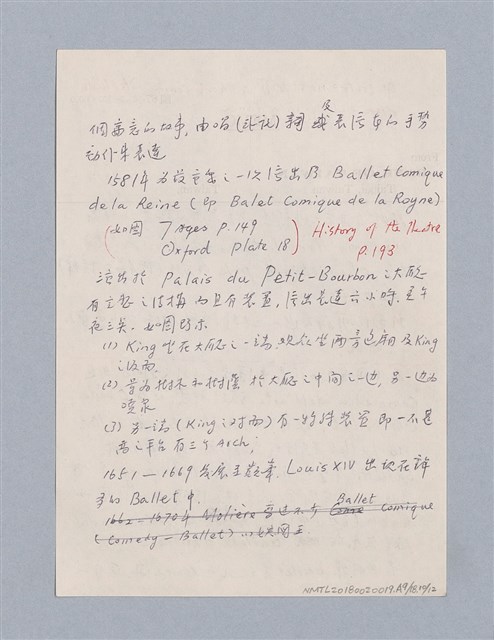 個寓意的故事,由唱(或說)詞及表演者的手勢
動作來表達
1581年為最重要之一次演出即 Ballet Comique
de la Reine (即 Balet Comique de la Royne)
(如圖 7 ages P.149
Oxford plate 18)
History of the Theatre
P.193
演出於 Palais du Petit-Bourbon 之大廳
有立體之佈攝 而且有裝置,演出長達六小時,至午
夜三矣.如圖所示
(1) King 坐在大廳之一端,觀眾坐兩旁包廂及King
之後面.
(2) 旁為樹木和樹叢 於大廳之中間之一邊,另一邊為
噴泉
(3) 另一端(King之對面)有一特殊裝置 即一不甚
高之平台 有三个Arch;
1651 — 1669 發展至 Louis XIV 出現在許
多的 Ballet 中.
1662-1670年 Molière Ballet Comique
(Comedy-Ballet)
NMTL20180020019.A9/18.10/12